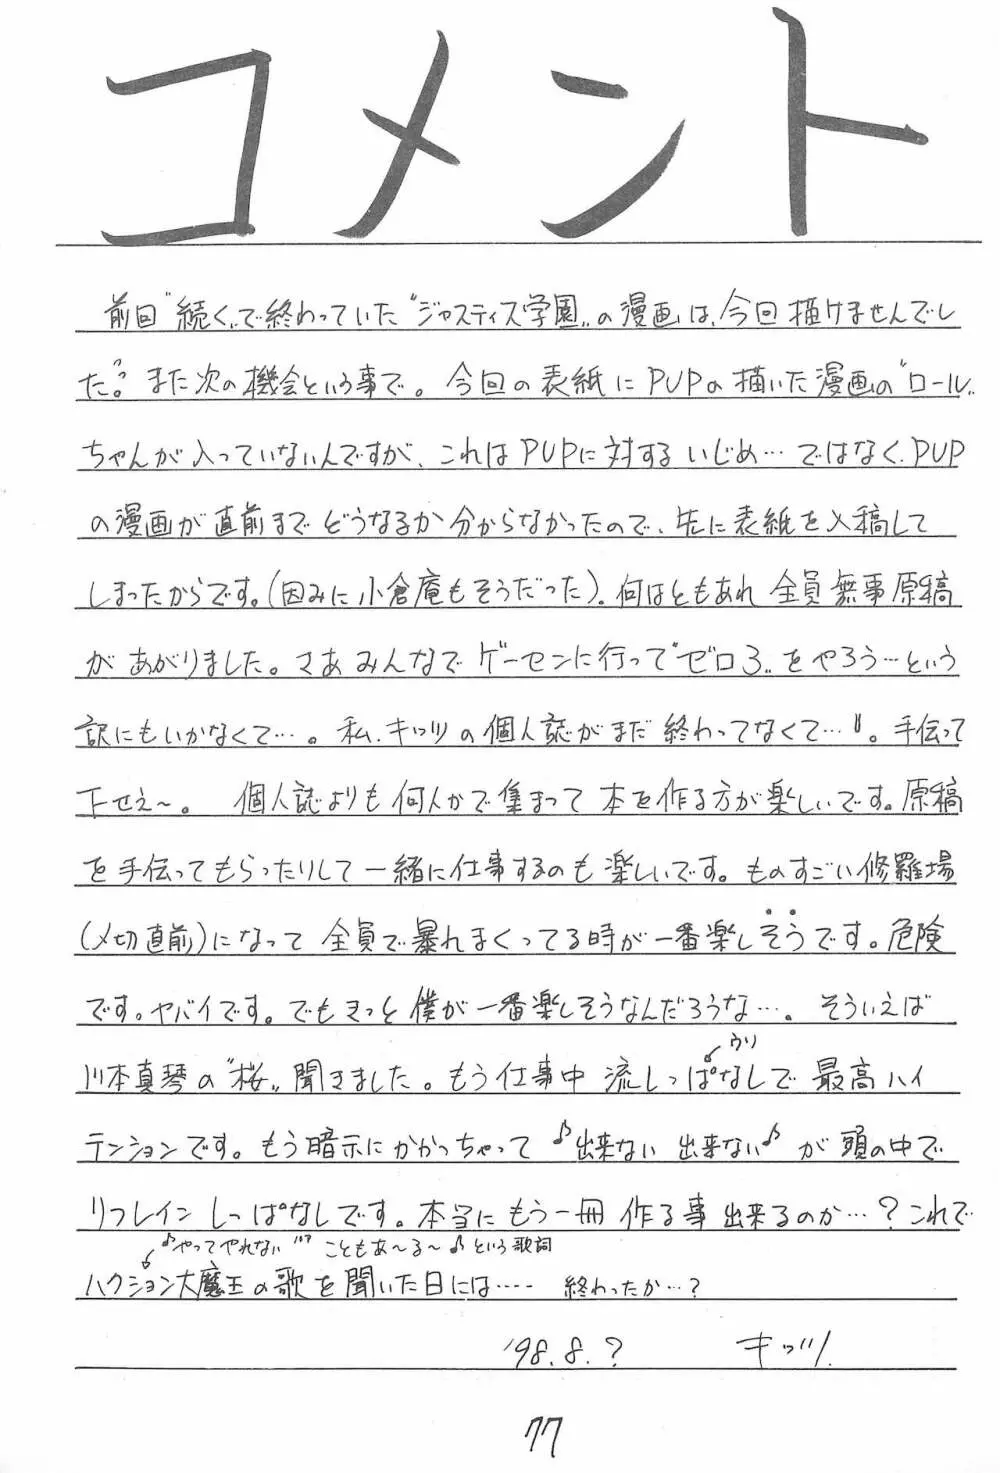 コメント
前回〝続く〟で終わっていた〝ジャスティス学園〟の漫画は、今回描けませんでし
た。また次の機会という事で。今回の表紙にPUPの描いた漫画の〝ロール〟
ちゃんが入っていないんですが、これはPUPに対するいじめ…ではなく、PUP
の漫画が直前までどうなるか分からなかったので、先に表紙を入稿して
しまったからです。(因みに小倉庵もそうだった)。何はともあれ全員無事原稿
があがりました。さあみんなでゲーセンに行って〝ゼロ3〟をやろう…という
訳にもいかなくて…。私、キッツの個人誌がまだ終わってなくて…。手伝って
下せえ〜。 個人誌よりも何人かで集まって本を作る方が楽しいです。原稿
を手伝ってもらったりして一緒に仕事するのも楽しいです。ものすごい修羅場
(〆切直前)になって全員で暴れまくってる時が一番楽しそうです。危険
です。ヤバイです。でもきっと僕が一番楽しそうなんだろうな…。そういえば
ウソ
川本真琴の〝桜〟聞きました。もう仕事中流しっぱなしで最高ハイ
テンションです。もう暗示にかかっちゃって♪出来ない出来ない♪が頭の中で
リフレインしっぱなしです。本当にもう一冊作る事出来るのか…?これで
♪やってやれないこともあ〜る〜♪という歌詞
ハクション大魔王の歌を聞いた日には…… 終わったか…?
'98.8.? キッツ.
77